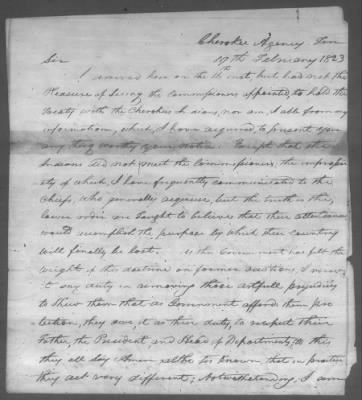 Cherokee Agency Ten
17th February 1823
Sir
I arrived here on the 16 inst, but had not the
Pleasure of Seeing the Commissioners appointed, to hold the
treaty with the Cherokee Indians, nor am, I able from any
information, which, I have acquired, to present you
any thing worthy your notice. Except that the
Indians did not meet the Commissioners, the improp
ety of which, I have frequently communicated to the
Chiefs, who generally acquiesce, but the truth is the,
lower order are taught to believe that their attendance
would accomplish the purpose by which their country
will finally be lost. as the Government has felt the
weight of this doctrine on former occasions, I view
it my duty in removing those artfull prejudices
to shew them that as Government afford them pro
tection, they owe, it as their duty, to respect their
Father, the President, and Head of Departments, to this
they all Say Amen, altho tis known, that in practice
they act very different; Notwithstanding, I am